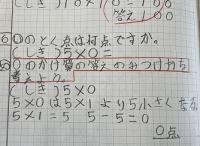 (しき)10×10=100
答え100
⑥①のとく点は何点ですか。
(しき)5×0=
め 0のかけ算の答えのみつけかたを
考えよう。
(しき)5×0
5×0は5×1より5小さくなる
5×1=5 5-5=0
0点